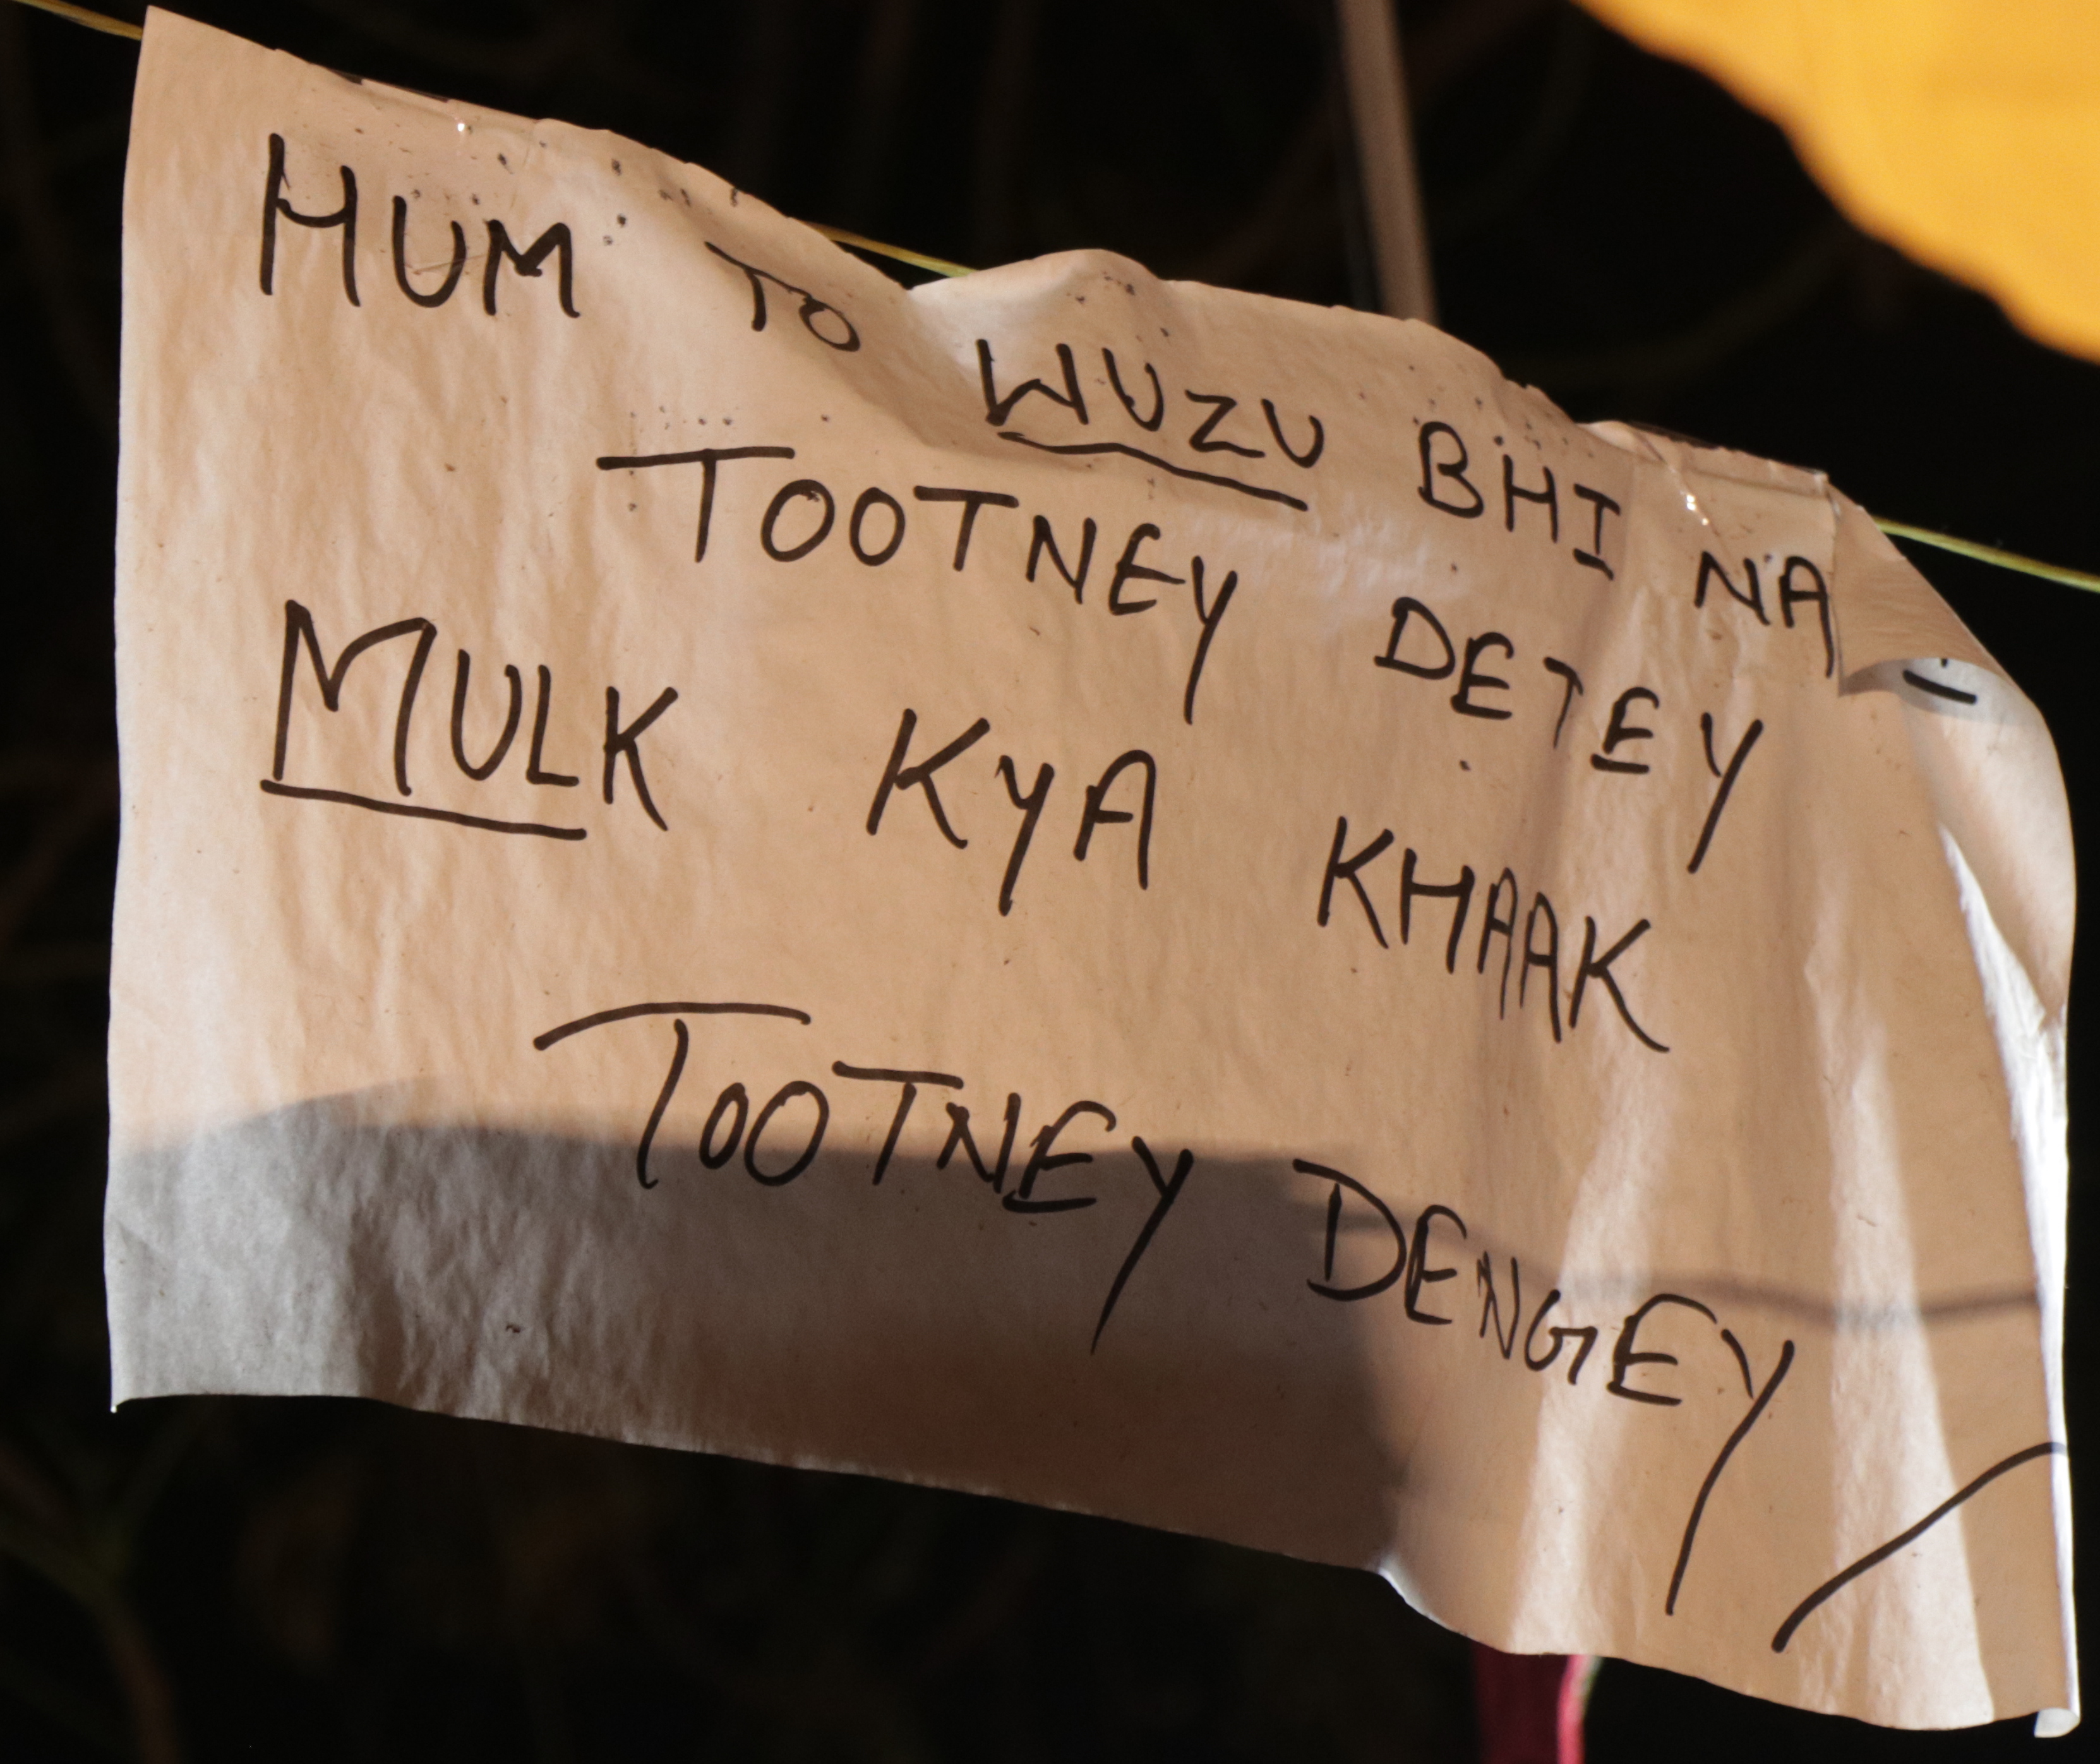 HUM TO WUZU BHI NA
TOOTNEY DETEY
MULK KYA KHAAK
TOOTNEY DENGEY